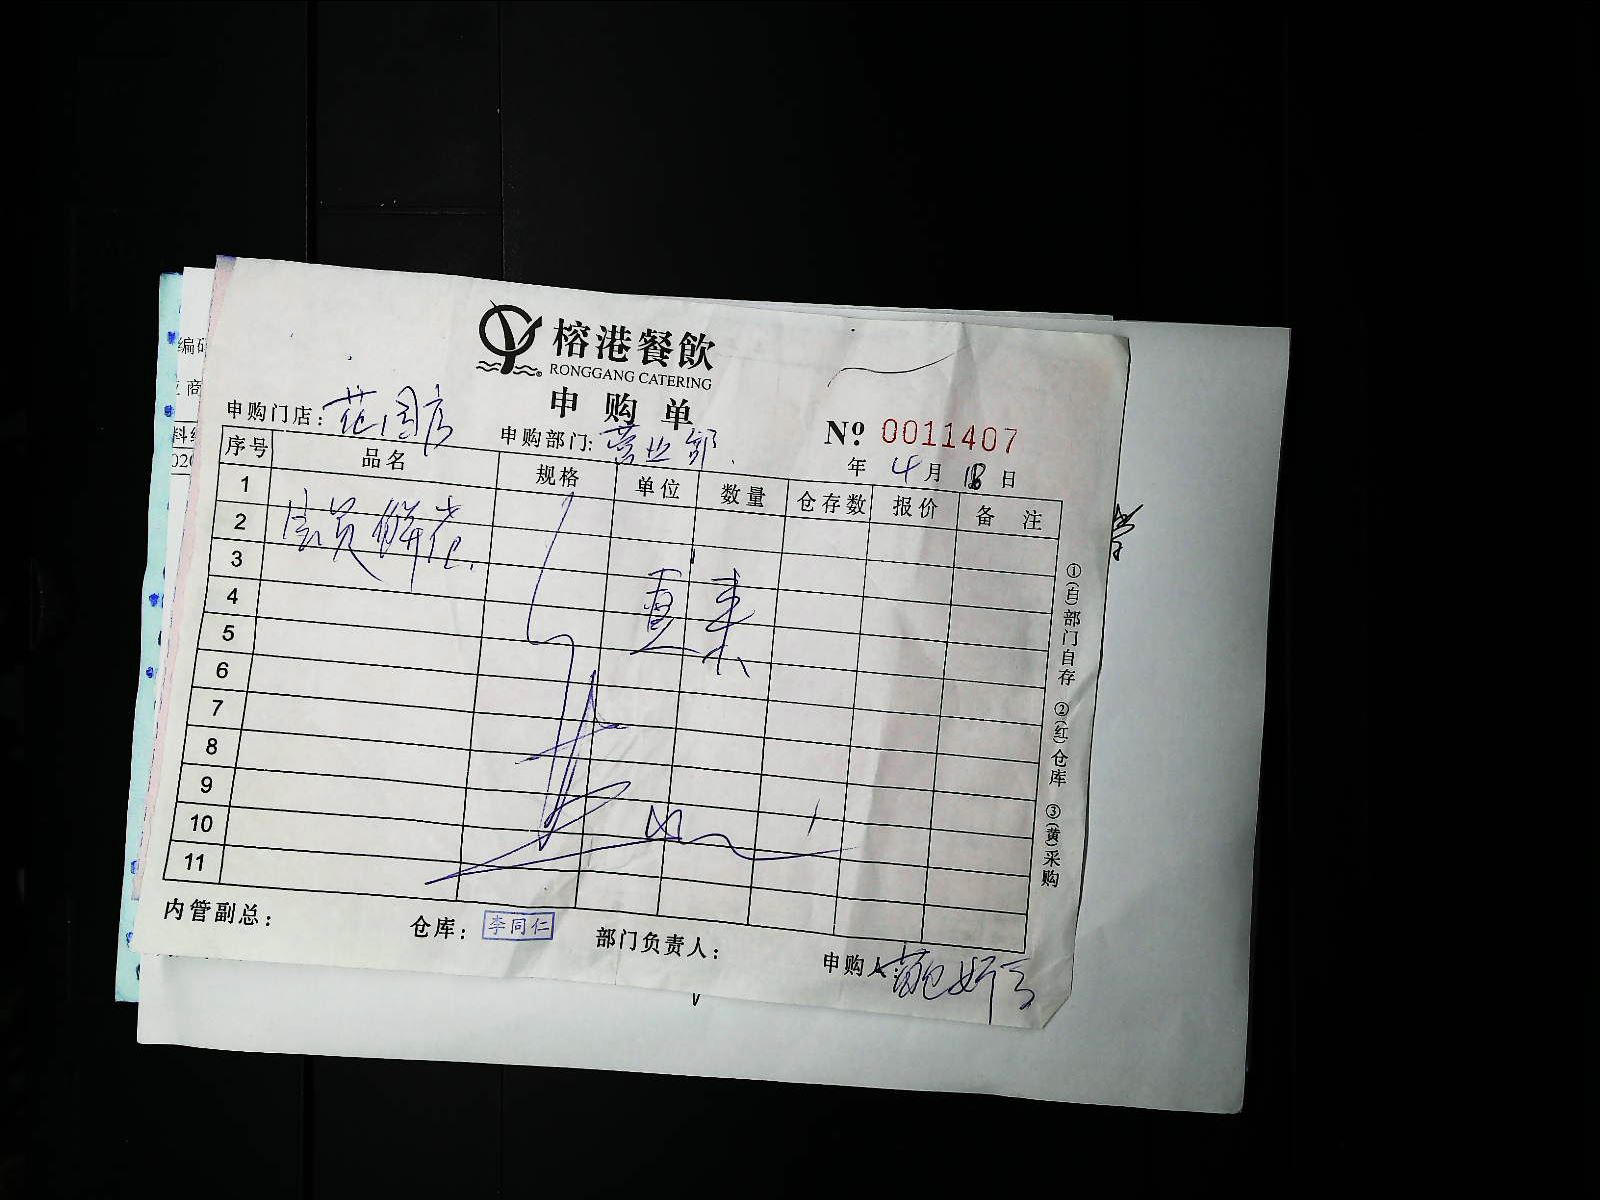 榕港餐飲
RONGGANG CATERING
申购单
申购门店：范围店
申购部门：营业部
Nº 0011407
年 4月 18日
序号 品名 规格 单位 数量 仓存数 报价 备注
1
2
3
4
5
6
7
8
9
10
11
①(白)部门自存 ②(红)仓库 ③(黄)采购
内管副总： 仓库：李同仁 部门负责人： 申购人：
编码
商
料编
020